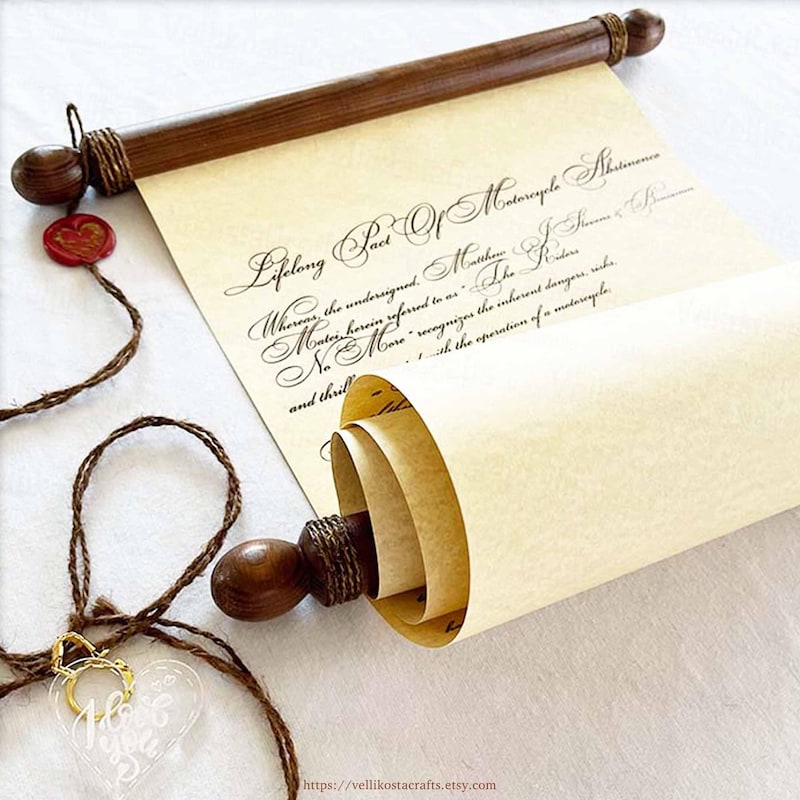 Lifelong Pact Of Motorcycle Abstinence
Whereas, the undersigned, Matthew J Stevens & Benjamin
Matei, herein referred to as "The Riders
No More" recognizes the inherent dangers, risks,
and thrill with the operation of a motorcycle;
I love
you
https://vellikostacrafts.etsy.com